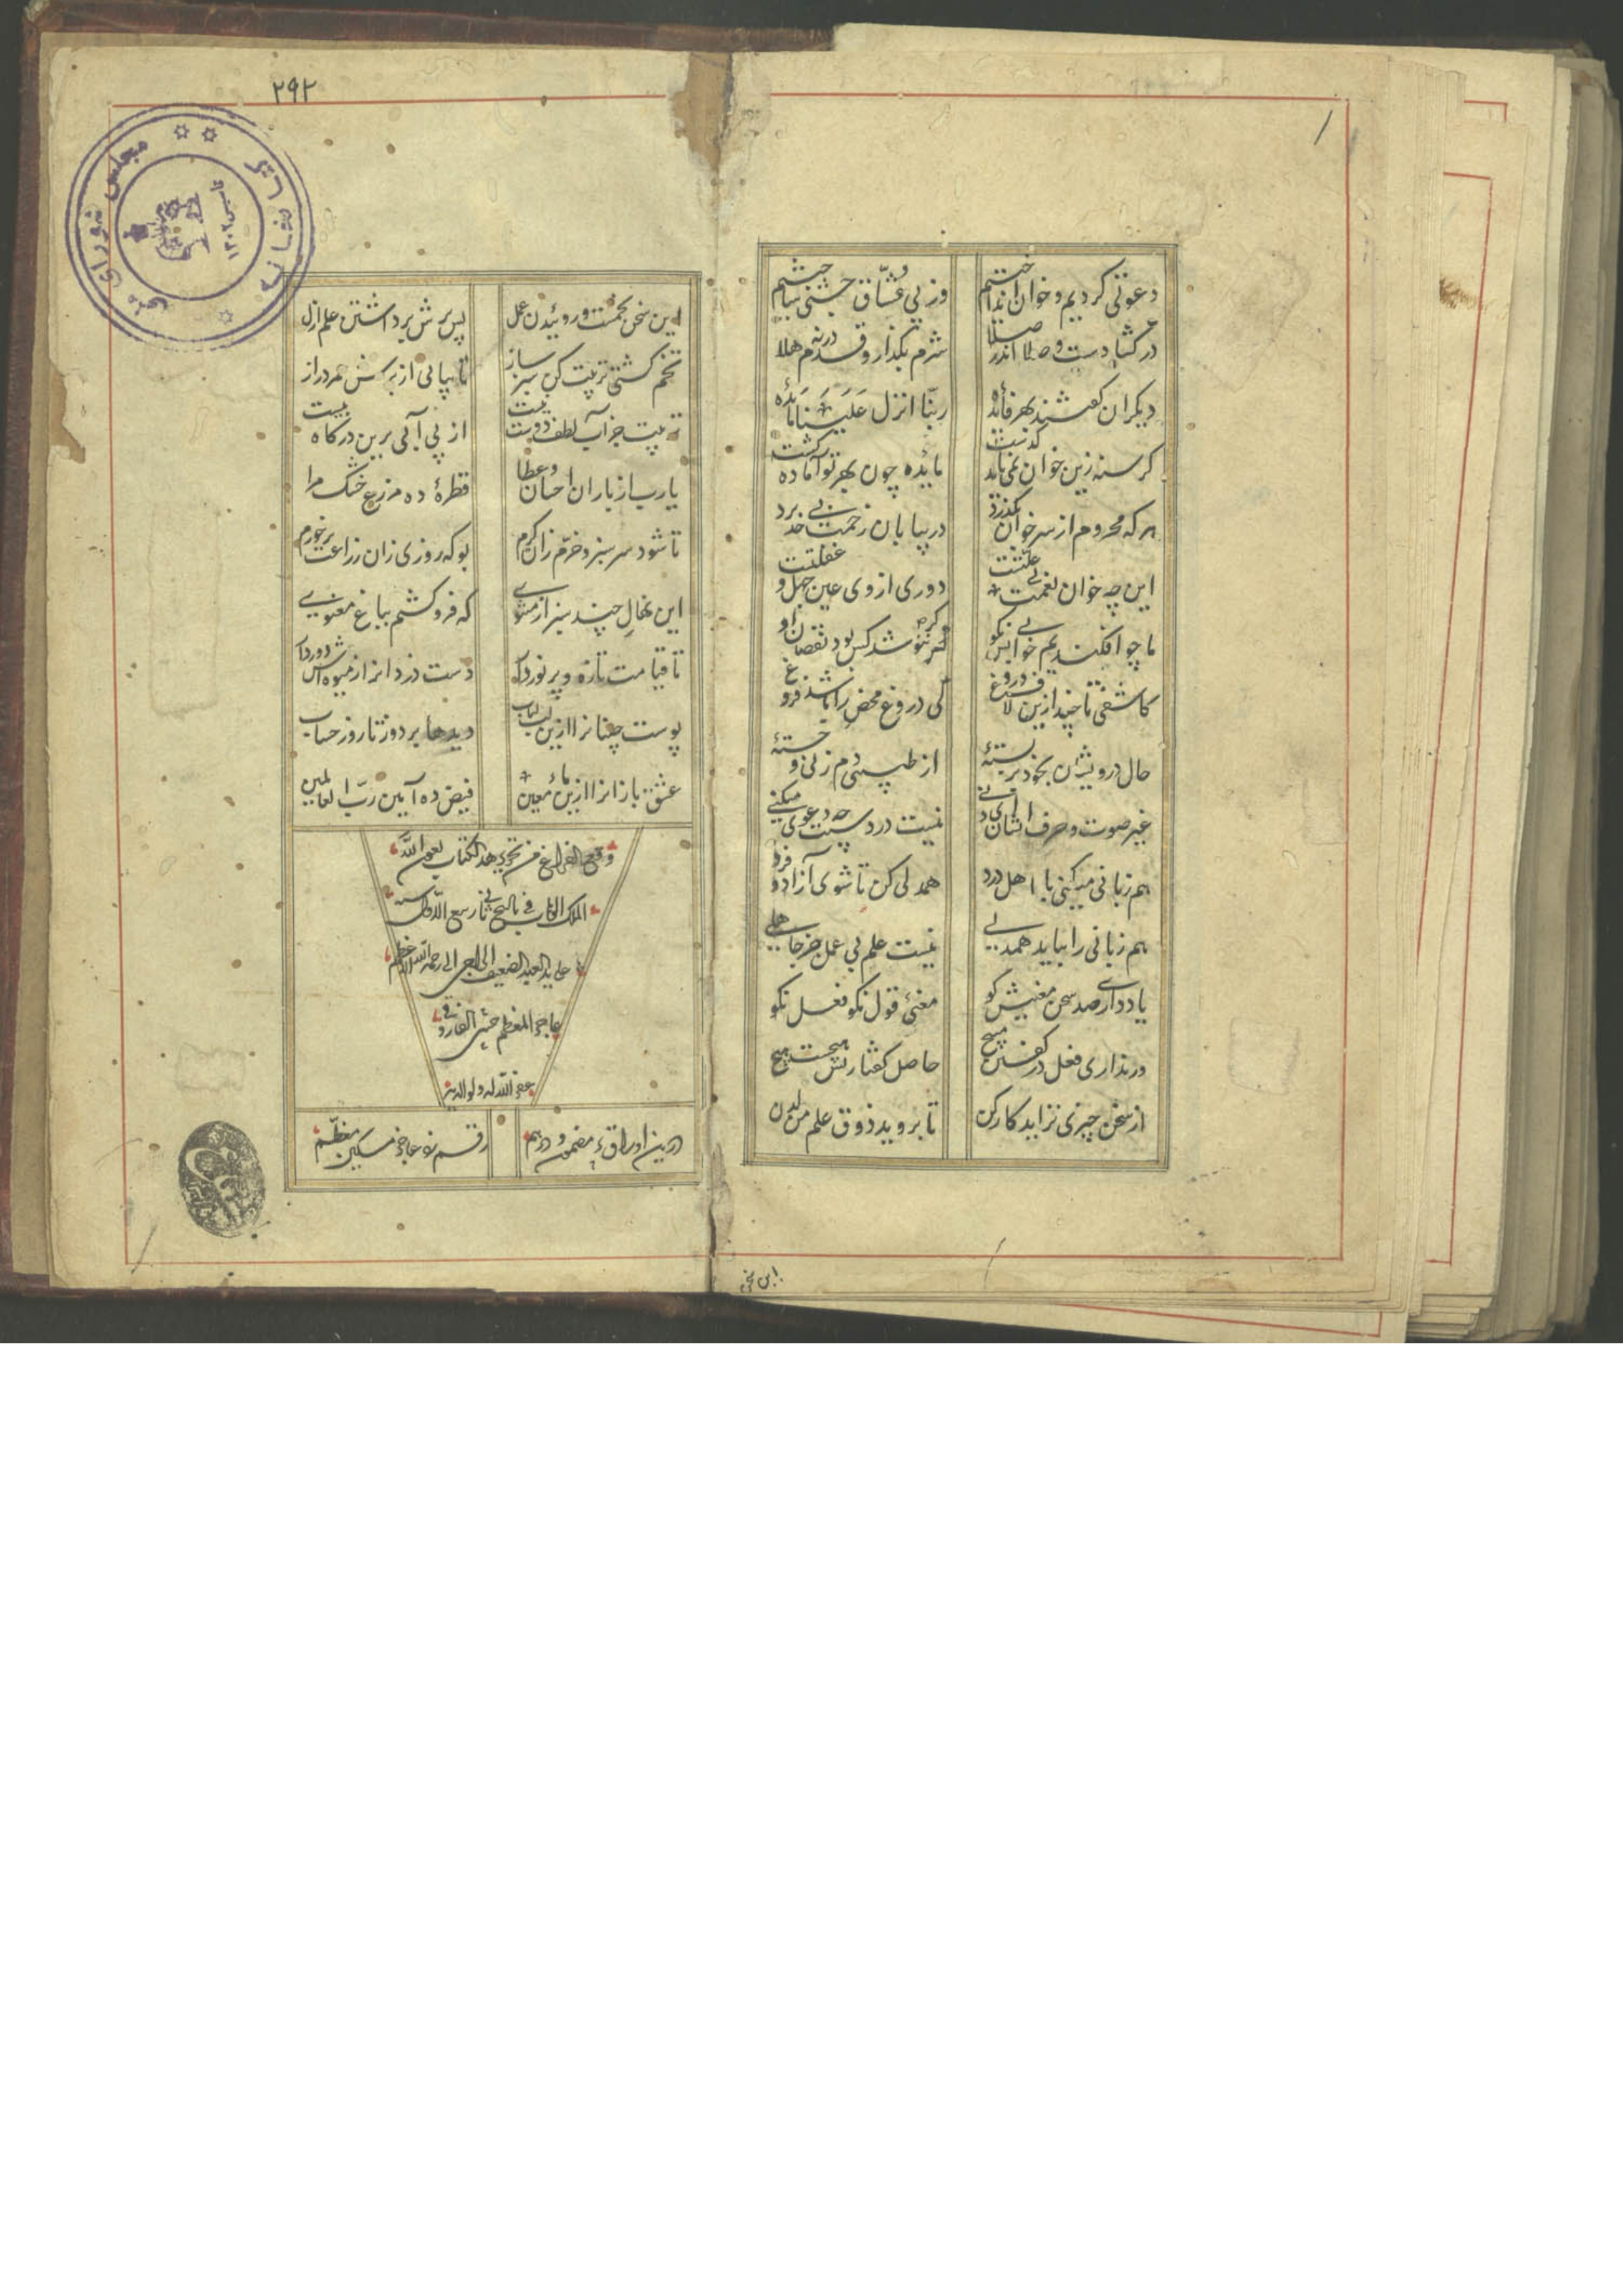 دعوتی کردیم و خوان انداختیم
وز پی عشاق جشنی ساختیم
در گشادست و صلا اندر صلا
شرم بگذار و قدم درنه هلا
دیگران گفتند بهر فائده
ربّنا انزل عَلَینَا مَائده
مایده چون بهر تو آماده گشت
هر که محروم از سر خوان بگذرد
در بیابان زحمت بی‌حد برد
این چه خوان نعمت بی علتست
دوری از وی عین جهل و غفلتست
ما چو افکندیم خوان بس نکو
گر ننوشد کس بود نقصان او
کاشفی تا چند ازین لاف دروغ
کی دروغ محض را باشد فروغ
حال درویشان بخود بربستهٔ
از طبیبی دم زنی و خستهٔ
نیست دردت چه دعوی میکنی
هم زبانی میکنی با اهل درد
همدلی کن تا شوی آزاد و فرد
هم زبانی را بباید همدلی
نیست علم بی عمل جز جاهلی
یاد داری صد سخن معنیش کو
معنی قول نکو فعل نکو
ور نداری فعل در گفتن مپیچ
حاصل گفتار بس هیچست هیچ
از سخن چیزی نزاید کار کن
تا بروید ذوق علم من لدن
این سخن
۲۹۲
این سخن تخمست و روئیدن عمل
پس برش برداشتن علم ازل
تخم کشتی تربیت کن سبز ساز
تا بیابی از برش عمر دراز
تربیت جز آب لطف دوست نیست
از پی آبی برین درگاه بیست
یارب از باران احسان و عطا
قطرهٔ ده مزرع خشک مرا
تا شود سرسبز و خرّم زان کرم
بو که روزی زان زراعت برخورم
این نهال چند سبز از مثنوی
که فروکشتم بباغ معنوی
تا قیامت تازه و پر نور دار
دست دزدانرا ز میوه‌اش دور دار
پوست چینانرا ازین لب لباب
دیدها بردوز تا روز حساب
عشق بازانرا ازین ماء معین
فیض ده آمین ربّ العالمین
وقع الفراغ من تحریر هذا الکتاب بعون اللّه
الملک الوهاب فی تاریخ ربیع الاول سنه
ید العبد الضعیف الراجی الی رحمة اللّه
عاجز المعظم
غفر اللّه له ولوالدیه
درین اوراق مضمون
رقم نو عاجز مسکین معظّم
مجلس شورای ملی
کتابخانه